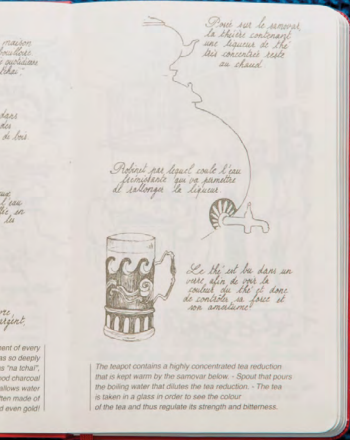 maison
bouilloir
tchaï".
dans
des
de bois
l'eau
en
argent,
ment of every
as so deeply
s "na tchaï",
ood charcoal
allows water
ften made of
d even gold)
Posée sur le samovar,
la théière contenant
une liqueur de thé
très concentrée reste
au chaud
Robinet par lequel coule l'eau
frémissante qui va permettre
de rallonger la liqueur.
Le thé est bu dans un
verre afin de voir la
couleur du thé et donc
de contrôler sa force et
son amertume!
The teapot contains a highly concentrated tea reduction
that is kept warm by the samovar below. - Spout that pours
the boiling water that dilutes the tea reduction. - The tea
is taken in a glass in order to see the colour
of the tea and thus regulate its strength and bitterness.